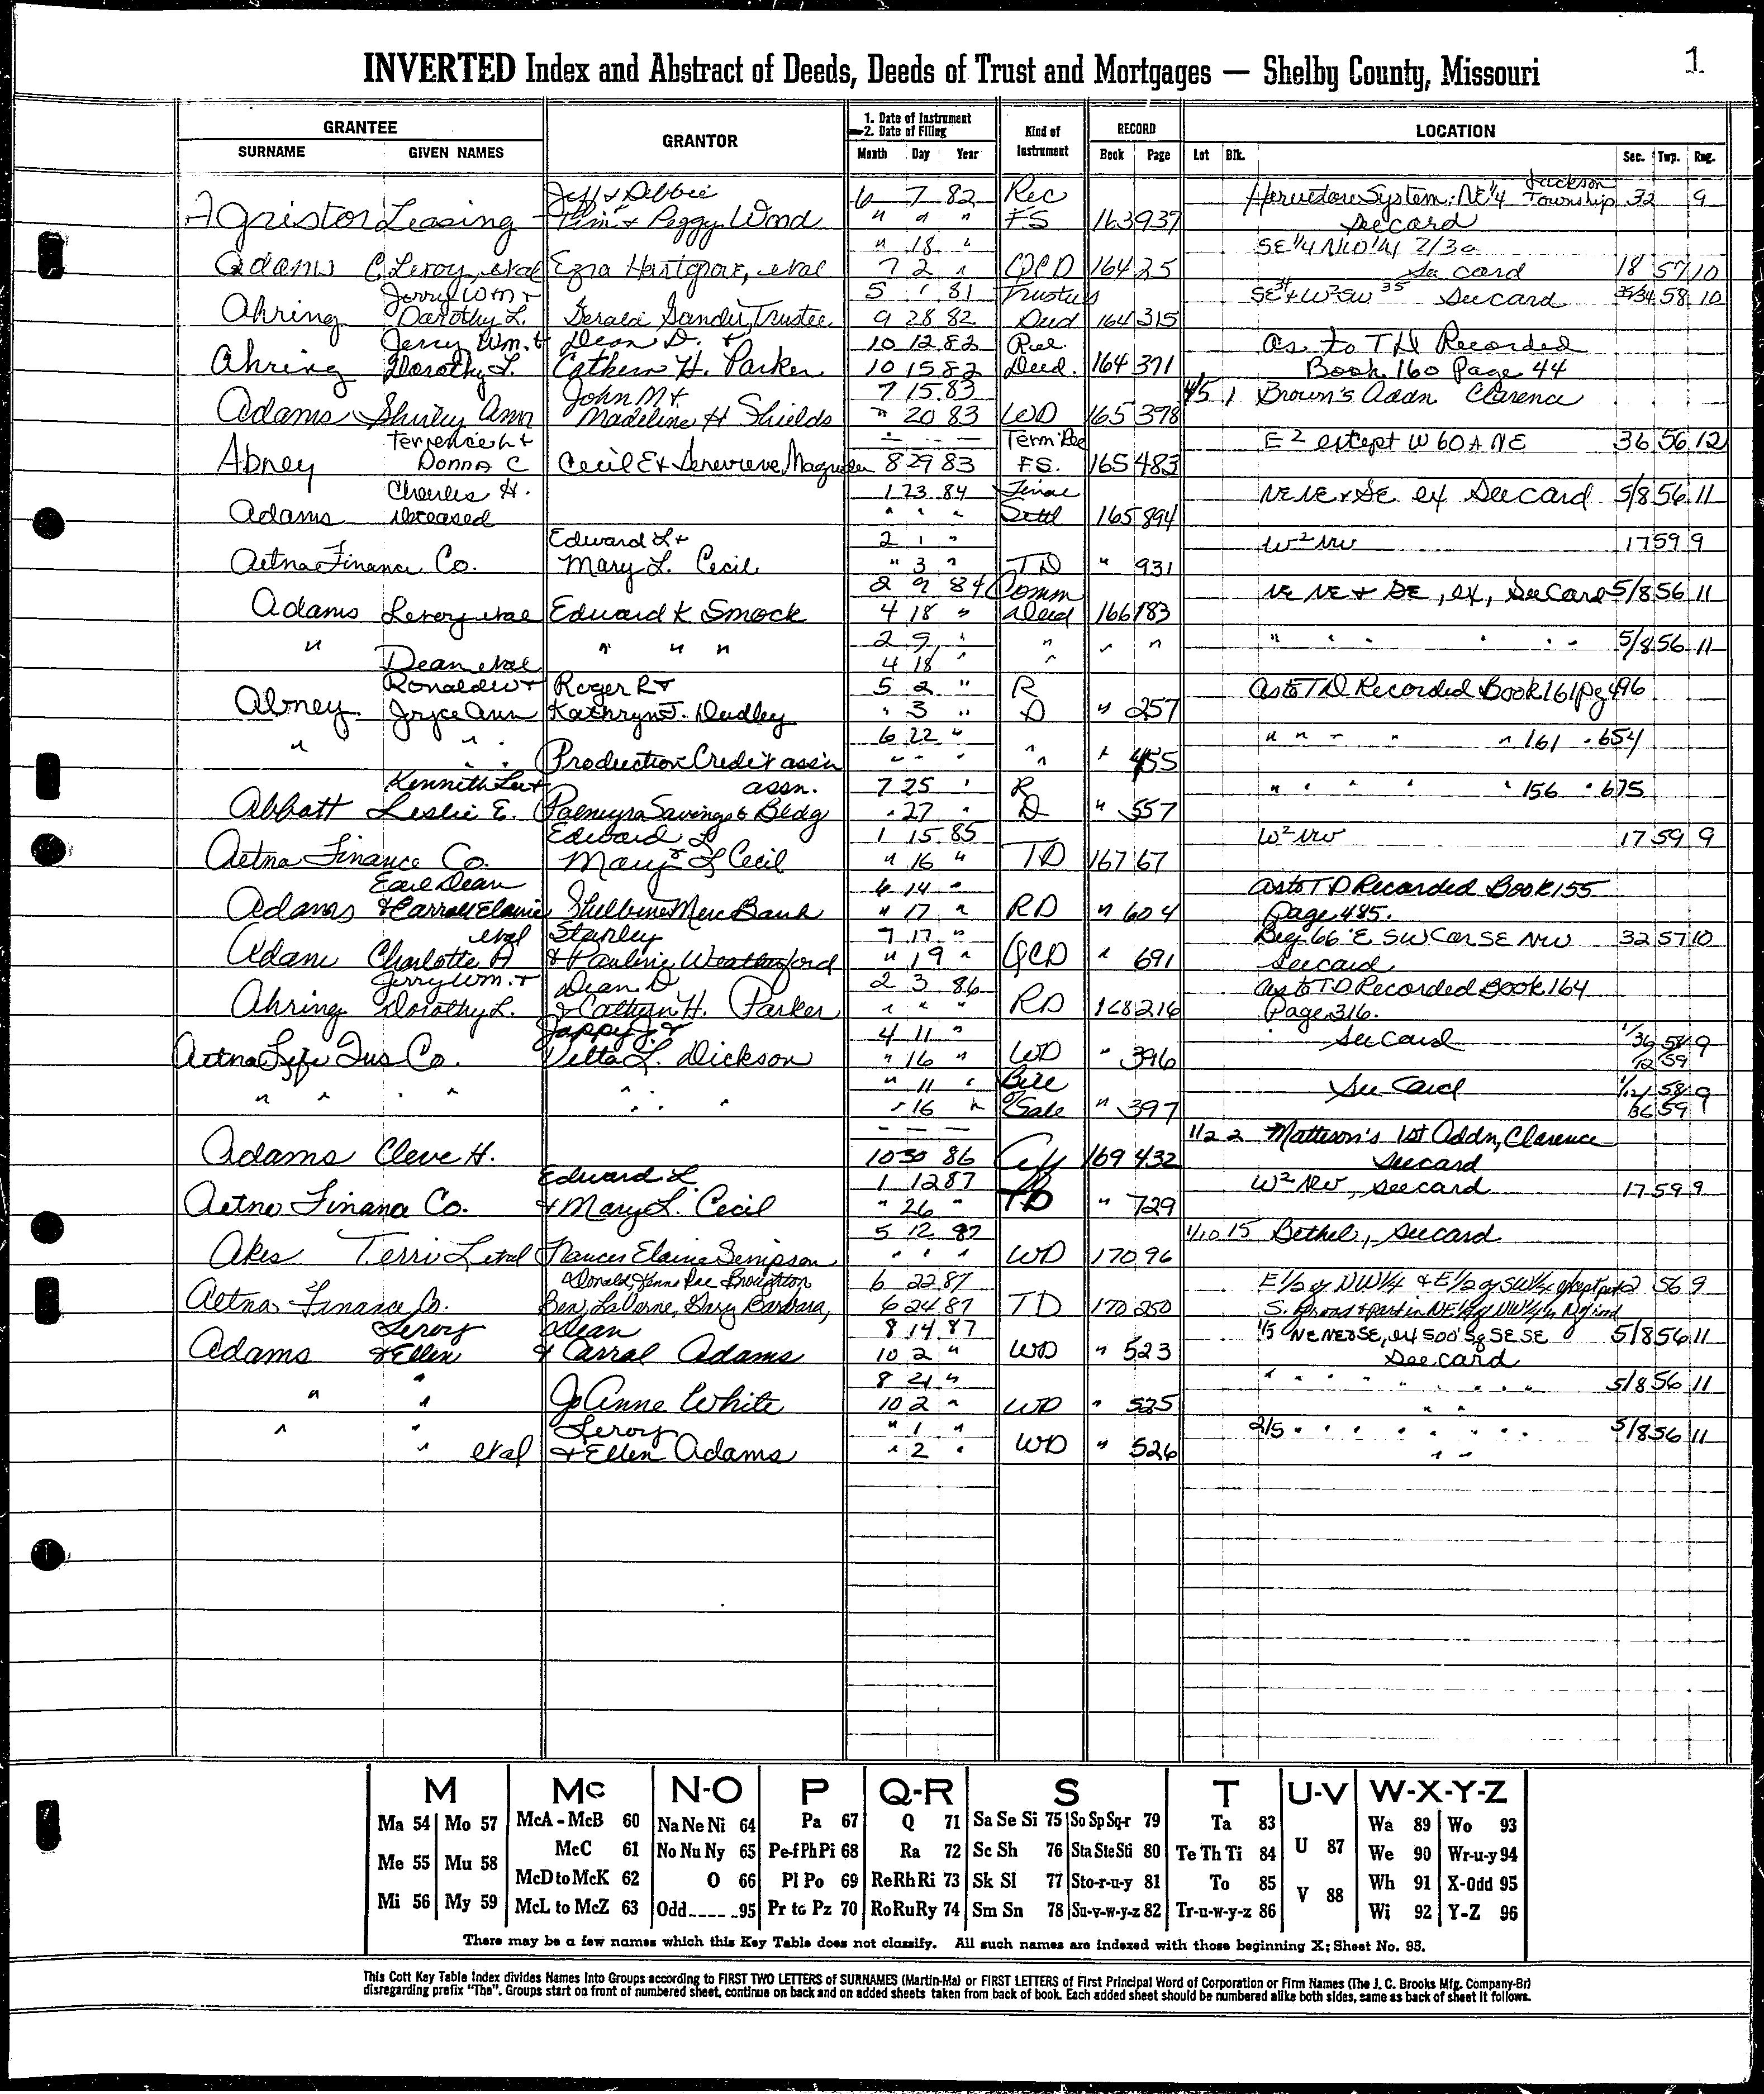 1
INVERTED Index and Abstract of Deeds, Deeds of Trust and Mortgages — Shelby County, Missouri
GRANTEE GRANTOR 1. Date of Instrument 2. Date of Filing Kind of Instrument RECORD LOCATION
SURNAME GIVEN NAMES Month Day Year Book Page Lot Blk. Sec. Twp. Rng.
Jeff & Debbie 6 7 82 Rec Harvestore System: NE¼ Jackson Township 32 9
Agristor Leasing Peggy Wood " " " FS 163 937 See card
" 18 " SE¼ NW¼ 2/3a
Adams C. Leroy, etal Ezra Hartgrove, etal 7 2 " QCD 164 25 See card 18 57 10
Jerry Wm & 5 1 81 Trustees SE 34 & W²SW 35 See card 35/34 58 10
Ahring Dorothy L. Gerald Sander, Trustee 9 28 82 Deed 164 315
Jerry Wm. & Dean D. & 10 12 82 Rel. As to TD Recorded
Ahring Dorothy L. Cathern H. Parker 10 15 82 Deed. 164 371 Book 160 Page 44
John M & 7 15 83 4/5 1 Brown's Addn Clarence
Adams Shirley Ann Madeline H Shields " 20 83 WD 165 378
Terrence L & — — — Term. Rec E² except W 60A NE 36 56 12
Abney Donna C Cecil E & Genevieve 8 29 83 FS. 165 483
Charles H. 1 23 84 Final NE NE & SE ex See card 5/8 56 11
Adams deceased " " " Settl 165 894
Edward L & 2 1 " W² NW 17 59 9
Aetna Finance Co. Mary L. Cecil " 3 " TD " 931
2 9 84 Comm NE NE & SE, ex, See Card 5/8 56 11
Adams Leroy etal Edward K Smock 4 18 " Deed 166 183
" " " " 2 9 " " " " " " " " " " 5/8 56 11
Dean etal 4 18 " "
Ronald W & Roger R & 5 2 " R as to TD Recorded Book 161 Pg 496
Abney Joyce Ann Kathryn J. Dudley " 3 " D " 257
" " " 6 22 " " " " " " 161 " 654
" " Production Credit ass'n " " " " " 455
Kenneth Lee & assn. 7 25 " R " " " " " 156 " 675
Abbott Leslie E. Palmyra Savings & Bldg " 27 " D " 557
Edward L 1 15 85 W² NW 17 59 9
Aetna Finance Co. & Mary L Cecil " 16 " TD 167 67
Earl Dean 6 14 " as to TD Recorded Book 155
Adams & Carroll Elaine Shelbina Merc Bank " 17 " RD " 604 Page 485.
etal Stanley 7 17 " Beg 66' E SW Cor SE NW 32 57 10
Adam Charlotte A & Pauline Weatherford " 19 " QCD " 691 See card
Jerry Wm. & Dean D 2 3 86 as to TD Recorded Book 164
Ahring Dorothy L. & Cathern H. Parker " " " RD 168 216 Page 316.
Jappy J. & 4 11 " See Card 1/36 58 9
Aetna Life Ins Co. Velta L. Dickson " 16 " WD " 396 12 59
" 11 " Bill See Card 1/12 58 9
" " " " " " " " 16 " of Sale " 397 36 59
— — — 1/2 2 Matteson's 1st Addn, Clarence
Adams Cleve H. 10 30 86 Aff 169 432 See card
Edward L. 1 12 87 W² NW, See card 17 59 9
Aetna Finance Co. & Mary L. Cecil " 26 " TD " 729
5 12 87 1/10 15 Bethel, See card
Akes Terri L etal Frances Elaine Simpson " " " WD 170 96
& Donald, Jenna Rae Broughton 6 22 87 E 1/2 of NW 1/4 & E 1/2 of SW 1/4 except pt 2 56 9
Aetna Finance Co. Ben, LaVerne, Gary Barbara, 6 24 87 TD 170 250 S. of road & part in NE 1/4 of NW 1/4 N of road
Leroy Dean 8 14 87 1/5 NE NE & SE, ex 500' Sq SE SE 5/8 56 11
Adams & Ellen & Carral Adams 10 2 " WD " 523 See card
" 8 21 " " " " " " " " " 5/8 56 11
" " Jo Anne White 10 2 " WD " 525 " "
" " Leroy " 1 " 2/5 " " " " " " " " 5/8 56 11
" etal & Ellen Adams " 2 " WD " 526 " "
M Mc N-O P Q-R S T U-V W-X-Y-Z
Ma 54 Mo 57 McA - McB 60 Na Ne Ni 64 Pa 67 Q 71 Sa Se Si 75 So Sp Sq-r 79 Ta 83 Wa 89 Wo 93
Me 55 Mu 58 McC 61 No Nu Ny 65 Pe-f Ph Pi 68 Ra 72 Sc Sh 76 Sta Ste Sti 80 Te Th Ti 84 U 87 We 90 Wr-u-y 94
McD to McK 62 O 66 Pl Po 69 Re Rh Ri 73 Sk Sl 77 Sto-r-u-y 81 To 85 V 88 Wh 91 X-Odd 95
Mi 56 My 59 McL to McZ 63 Odd_ _ _ _ _95 Pr to Pz 70 Ro Ru Ry 74 Sm Sn 78 Su-v-w-y-z 82 Tr-u-w-y-z 86 Wi 92 Y-Z 96
There may be a few names which this Key Table does not classify. All such names are indexed with those beginning X; Sheet No. 95.
This Cott Key Table Index divides Names Into Groups according to FIRST TWO LETTERS of SURNAMES (Martin-Ma) or FIRST LETTERS of First Principal Word of Corporation or Firm Names (The J. C. Brooks Mfg. Company-Br)
disregarding prefix "The". Groups start on front of numbered sheet, continue on back and on added sheets taken from back of book. Each added sheet should be numbered alike both sides, same as back of sheet it follows.